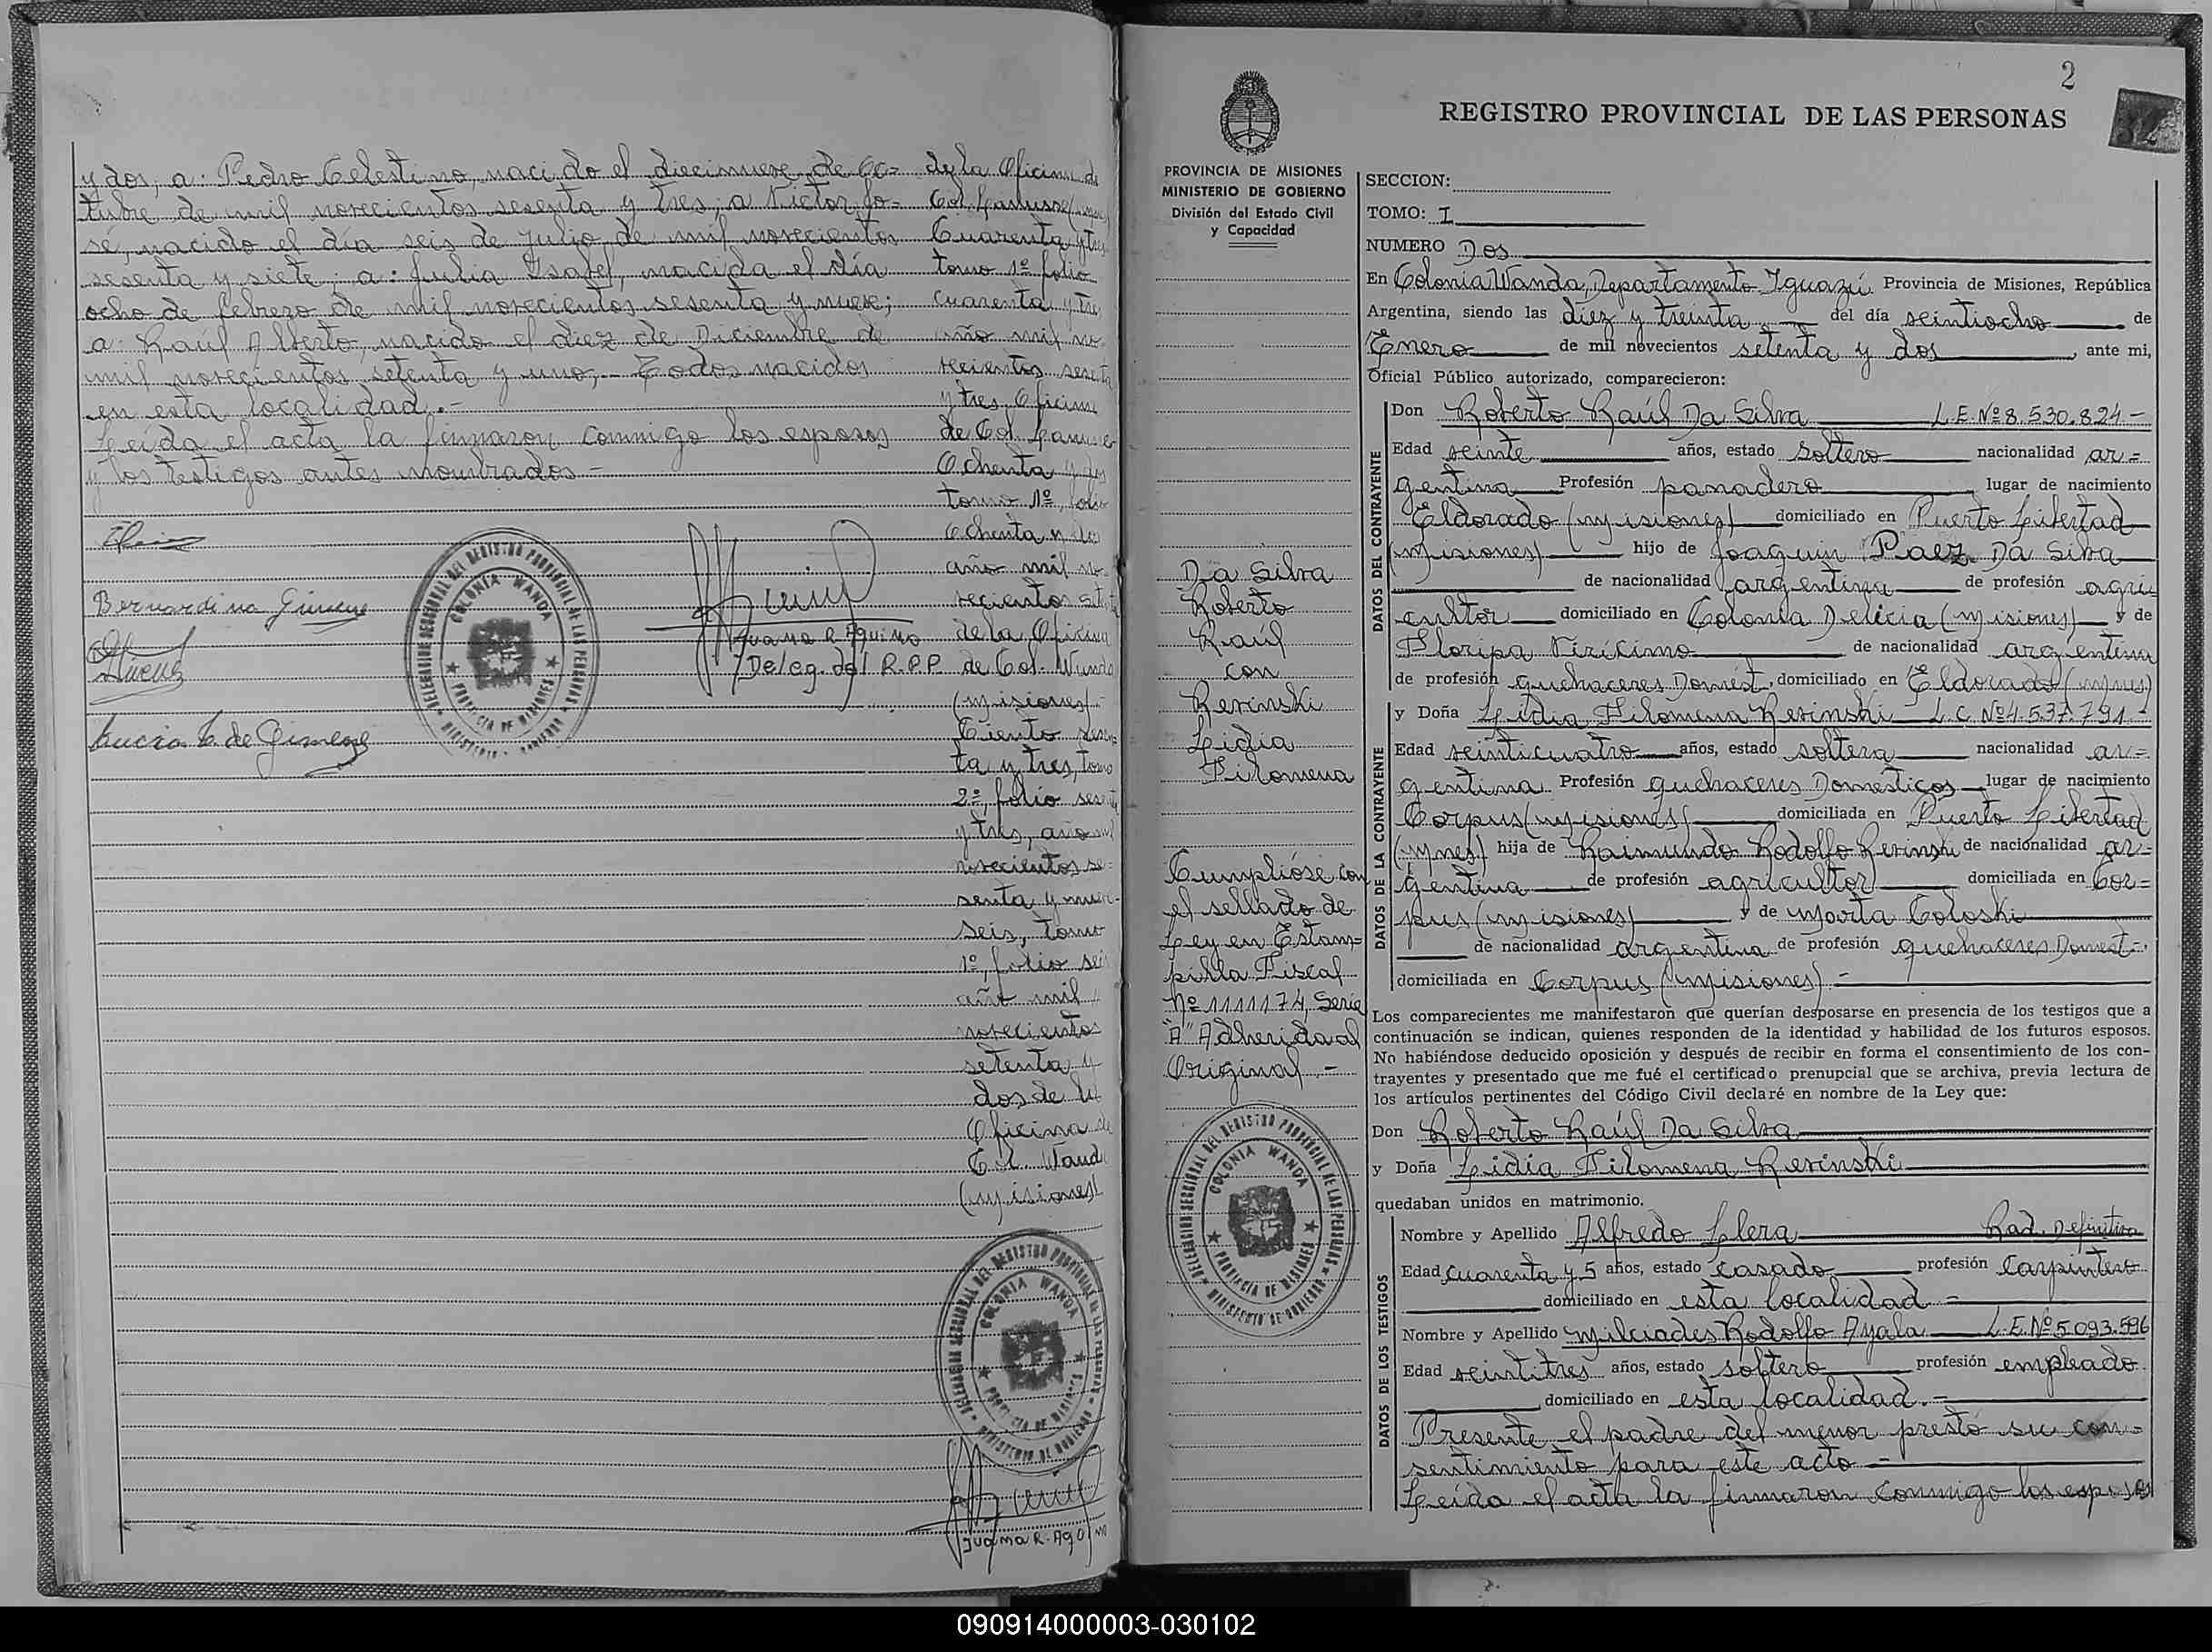 y dos, a: Pedro Celestino, nacido el diecinueve de Oc=
tubre de mil novecientos sesenta y tres; a Victor Jo=
sé, nacido el día seis de Julio de mil novecientos
sesenta y siete; a: Julia Ysabel, nacida el día
ocho de febrero de mil novecientos sesenta y nueve;
a: Raúl Alberto, nacido el diez de Diciembre de
mil novecientos setenta y uno,- Todos nacidos
en esta localidad.-
Leída el acta la firmaron conmigo los esposos
y los testigos antes nombrados-
de la Oficina de
Col.
Cuarenta y tres
tomo 1º folio
cuarenta y tres
año mil no
vecientos sesenta
y tres, Oficina
de Col.
Ochenta y dos
tomo 1º, folio
Ochenta y dos
año mil no
vecientos
de la Oficina
de Col. Wanda
(Misiones)-
Ciento sesen
ta y tres, tomo
2º, folio sesenta
y tres, año mil
novecientos se=
senta y nueve-
Seis, tomo
1º, folio seis
año mil
novecientos
setenta y
dos de la
Oficina de
Col. Wanda
(Misiones)
Bernardina Gimenez
Lucia C. de Gimenez
Juana R. Aquino
Deleg. del R.P.P.
DELEGACION SECCIONAL DEL REGISTRO PROVINCIAL DE LAS PERSONAS
COLONIA WANDA
PROVINCIA DE MISIONES
MINISTERIO DE GOBIERNO
DELEGACION SECCIONAL DEL REGISTRO PROVINCIAL DE LAS PERSONAS
COLONIA WANDA
PROVINCIA DE MISIONES
MINISTERIO DE GOBIERNO
Juana R. Aquino
2
REGISTRO PROVINCIAL DE LAS PERSONAS
PROVINCIA DE MISIONES
MINISTERIO DE GOBIERNO
División del Estado Civil
y Capacidad
Da Silva
Roberto
Raúl
con
Kerinski
Lidia
Filomena
Cumplióse con
el sellado de
Ley en Estam=
pilla Fiscal
Nº 1111174, Serie
"A" Adherida al
Original.-
DELEGACION SECCIONAL DEL REGISTRO PROVINCIAL DE LAS PERSONAS
COLONIA WANDA
PROVINCIA DE MISIONES
MINISTERIO DE GOBIERNO
SECCION:
TOMO: I
NUMERO Dos
En Colonia Wanda, Departamento Iguazú Provincia de Misiones, República
Argentina, siendo las diez y treinta del día veintiocho de
Enero de mil novecientos setenta y dos, ante mi,
Oficial Público autorizado, comparecieron:
DATOS DEL CONTRAYENTE
Don Roberto Raúl Da Silva L.E. Nº 8.530.824-
Edad veinte años, estado soltero nacionalidad ar=
gentina Profesión panadero lugar de nacimiento
Eldorado (Misiones) domiciliado en Puerto Libertad
(Misiones) hijo de Joaquin Paez Da Silva
de nacionalidad argentina de profesión agri
cultor domiciliado en Colonia Delicia (Misiones) y de
Floripa de nacionalidad argentina
de profesión quehaceres Domést., domiciliado en Eldorado (Mnes)
DATOS DE LA CONTRAYENTE
y Doña Lidia Filomena Kerinski L.C. Nº 4.537.791-
Edad veinticuatro años, estado soltera nacionalidad ar=
gentina Profesión quehaceres Domésticos lugar de nacimiento
Corpus (Misiones) domiciliada en Puerto Libertad
(Mnes) hija de Raimundo Rodolfo Kerinski de nacionalidad ar=
gentina de profesión agricultor domiciliada en Cor=
pus (Misiones) y de Marta Coloski
de nacionalidad argentina de profesión quehaceres Domést-.
domiciliada en Corpus (Misiones)-
Los comparecientes me manifestaron que querían desposarse en presencia de los testigos que a
continuación se indican, quienes responden de la identidad y habilidad de los futuros esposos.
No habiéndose deducido oposición y después de recibir en forma el consentimiento de los con-
trayentes y presentado que me fué el certificado prenupcial que se archiva, previa lectura de
los artículos pertinentes del Código Civil declaré en nombre de la Ley que:
Don Roberto Raúl Da Silva
y Doña Lidia Filomena Kerinski
quedaban unidos en matrimonio.
DATOS DE LOS TESTIGOS
Nombre y Apellido Alfredo Llera Rad. Definitiva
Edad cuarenta y 5 años, estado casado profesión carpintero
domiciliado en esta localidad-
Nombre y Apellido Milciades Rodolfo Ayala L.E. Nº 5.093.596
Edad veintitres años, estado soltero profesión empleado
domiciliado en esta localidad.-
Presente el padre del menor prestó su con=
sentimiento para este acto-
Leída el acta la firmaron conmigo los esposos
090914000003-030102